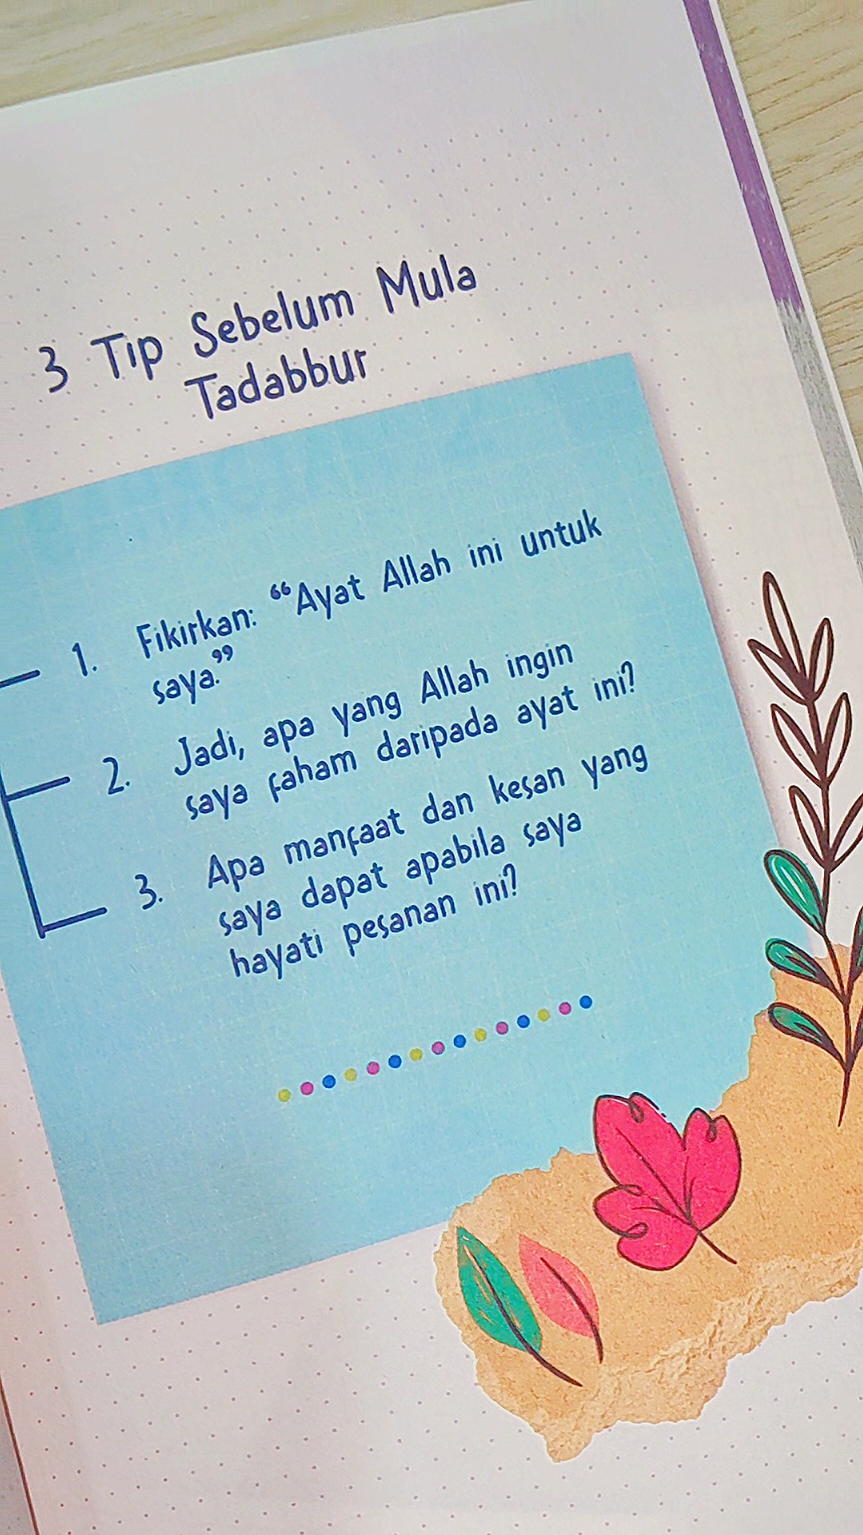 3 Tip Sebelum Mula
Tadabbur
1. Fikirkan: “Ayat Allah ini untuk
saya.”
2. Jadi, apa yang Allah ingin
saya faham daripada ayat ini?
3. Apa manfaat dan kesan yang
saya dapat apabila saya
hayati pesanan ini?